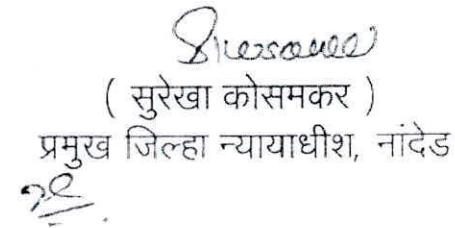 ( सुरेखा कोसमकर )
प्रमुख जिल्हा न्यायाधीश, नांदेड